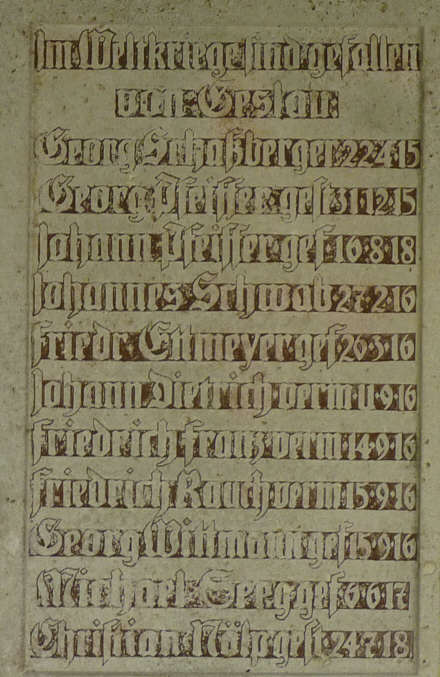 Im Weltkriege sind gefallen
von Geslau:
Georg Schaßberger 22·4·15
Georg Pfeiffer gest 31·12·15
Johann Pfeiffer gef 16·8·18
Johannes Schwab 27·2·16
Friedr. Ettmeyer gef 26·3·16
Johann Dietrich verm 11·9·16
Friedrich Franz verm 14·9·16
Friedrich Rauch verm 15·9·16
Georg Wittmann gef 15·9·16
Michael Seeg gef 6·6·17
Christian Nölp gest 24·7·18